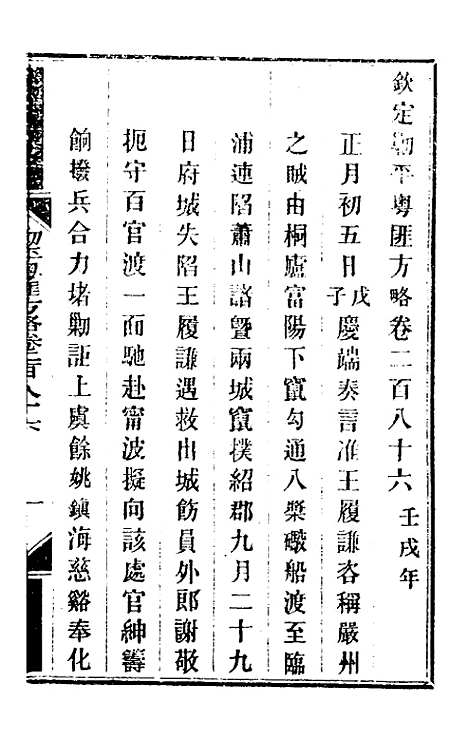 欽定勦平粵匪方略卷二百八十六 壬戌年
正月初五日戊子慶端奏言准王履謙咨稱嚴州
之賊由桐廬富陽下竄勾通八槳礮船渡至臨
浦連陷蕭山諸暨兩城竄撲紹郡九月二十九
日府城失陷王履謙遇救出城飭員外郎謝敬
扼守百官渡一面馳赴甯波擬向該處官紳籌
餉撥兵合力堵勦詎上虞餘姚鎮海慈谿奉化
勦平粵匪方略卷二百八十六 一